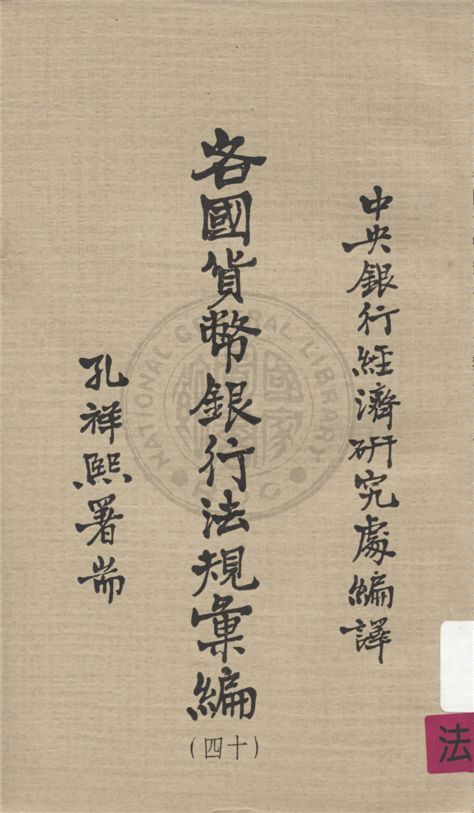 中央銀行經濟研究處編譯
各國貨幣銀行法規彙編
(十四)
孔祥熙署耑
NATIONAL CENTRAL LIBRARY
法